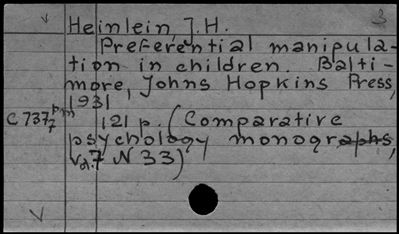 3
Heinlein, J.H.
Preferential manipula-
tion in children. Balti-
more, Johns Hopkins Press,
1931
C737pm7 121 p. (Comparative
psychology monographs,
v.7 N 33)